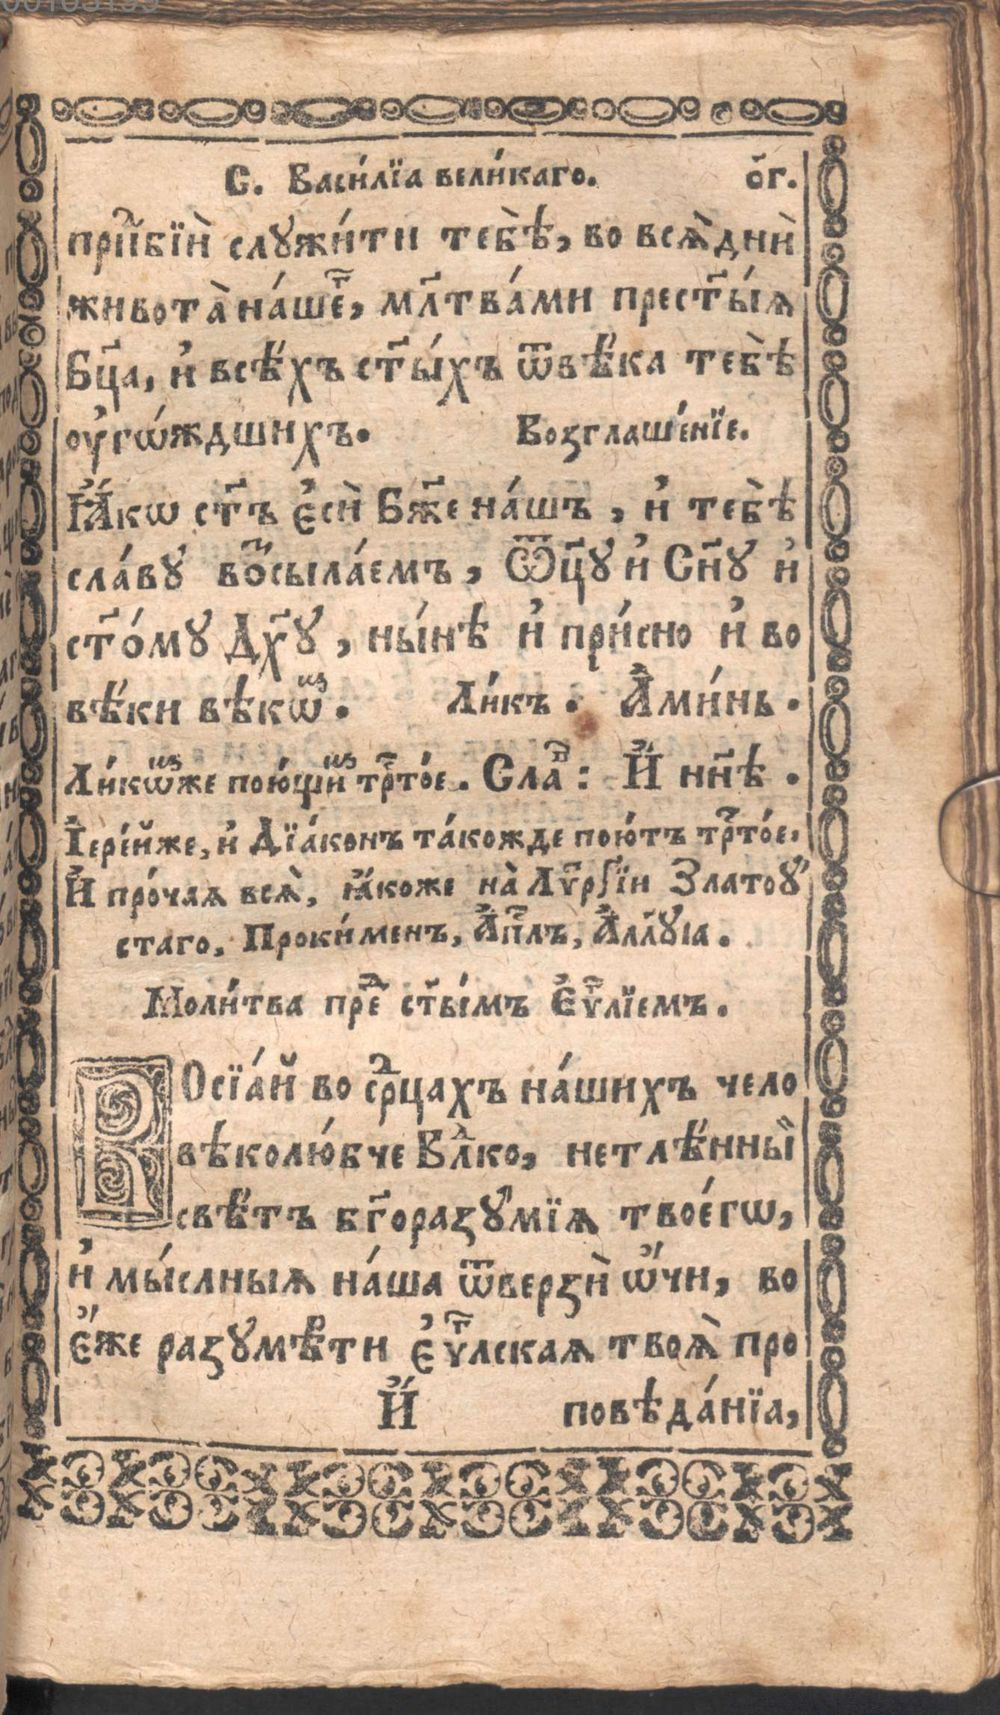 С. Васи́лїа вели́каго. о҃г.
прп҃бїѝ служи́ти тебѣ̀, во всѧ̀ днѝ
живота̀ на́шеⷢ҇, мл҃тва́ми прест҃ы́ѧ
Бц҃а, и҆ всѣ́хъ ст҃ы́хъ ѿвѣ́ка тебѣ̀
оу҆гѡ́ждшихъ. Возглаше́нїе.
Ꙗ҆́кѡ ст҃ъ є҆сѝ Бж҃е на́шъ, и҆ тебѣ̀
сла́ву воⷥсыла́емъ, Ѿц҃у и҆ Сн҃у и҆
ст҃о́му Дх҃у, ны́нѣ и҆ при́сно и҆ во
вѣ́ки вѣкѡ́ⷨ. Ли́къ. А҆ми́нь.
Ли́кѡⷨже пою́щиⷨ трⷭ҇то́е. Слаⷡ҇: И҆́ нн҃ѣ.
І҆ере́йже, и҆ Дїа́конъ та́кожде пою́тъ трⷭ҇то́е.
И҆́ про́чаѧ всѧ̀, ꙗ҆́коже на̀ Лѵⷮрⷢ҇їи Златоу́
стаго, Проки́менъ, А҆пⷭ҇лъ, А҆ллу́іа.
Моли́тва преⷣ ст҃ы́мъ Є҆ѵⷢ҇лїемъ.
ВОсїа́й во срⷣцахъ на́шихъ чело
вѣколю́бче Влⷣко, нетлѣ́нный
свѣ́тъ бг҃оразу́мїѧ твоегѡ̀,
и҆ мы́слныѧ на́ша ѿверзѝ ѻ҆́чи, во
є҆́же разумѣ́ти є҆ѵⷢ҇лскаѧ твоѧ̀ про
И҆́ повѣда́нїа,